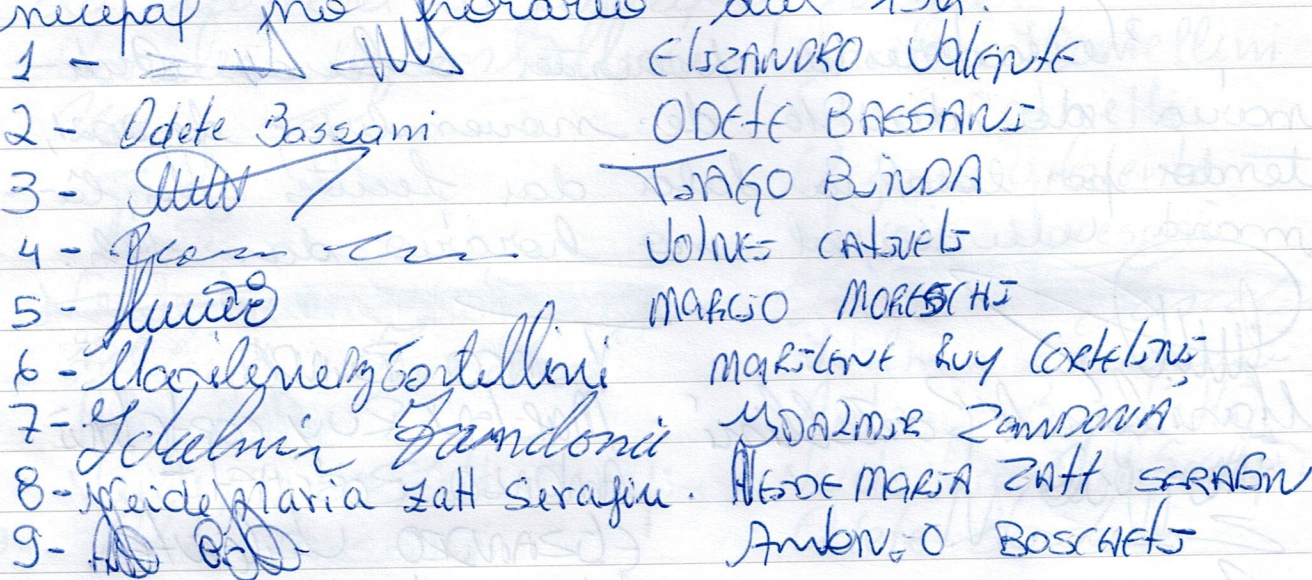 nicipal no horário das 19h.
1 - ELIZANDRO VALENTE
2 - Odete Bassani ODETE BASSANI
3 - TIAGO BINDA
4 - VOLNEI CATSUETI
5 - MARCIO MORESCHI
6 - Marilene Ruy Cortellini MARILENE RUY CORTELINI
7 - Idalmir Zandoná IDALMIR ZANDONÁ
8 - Neide Maria Zatt Serafin. NEIDE MARIA ZATT SERAFIN
9 - Antonio BOSCHETI